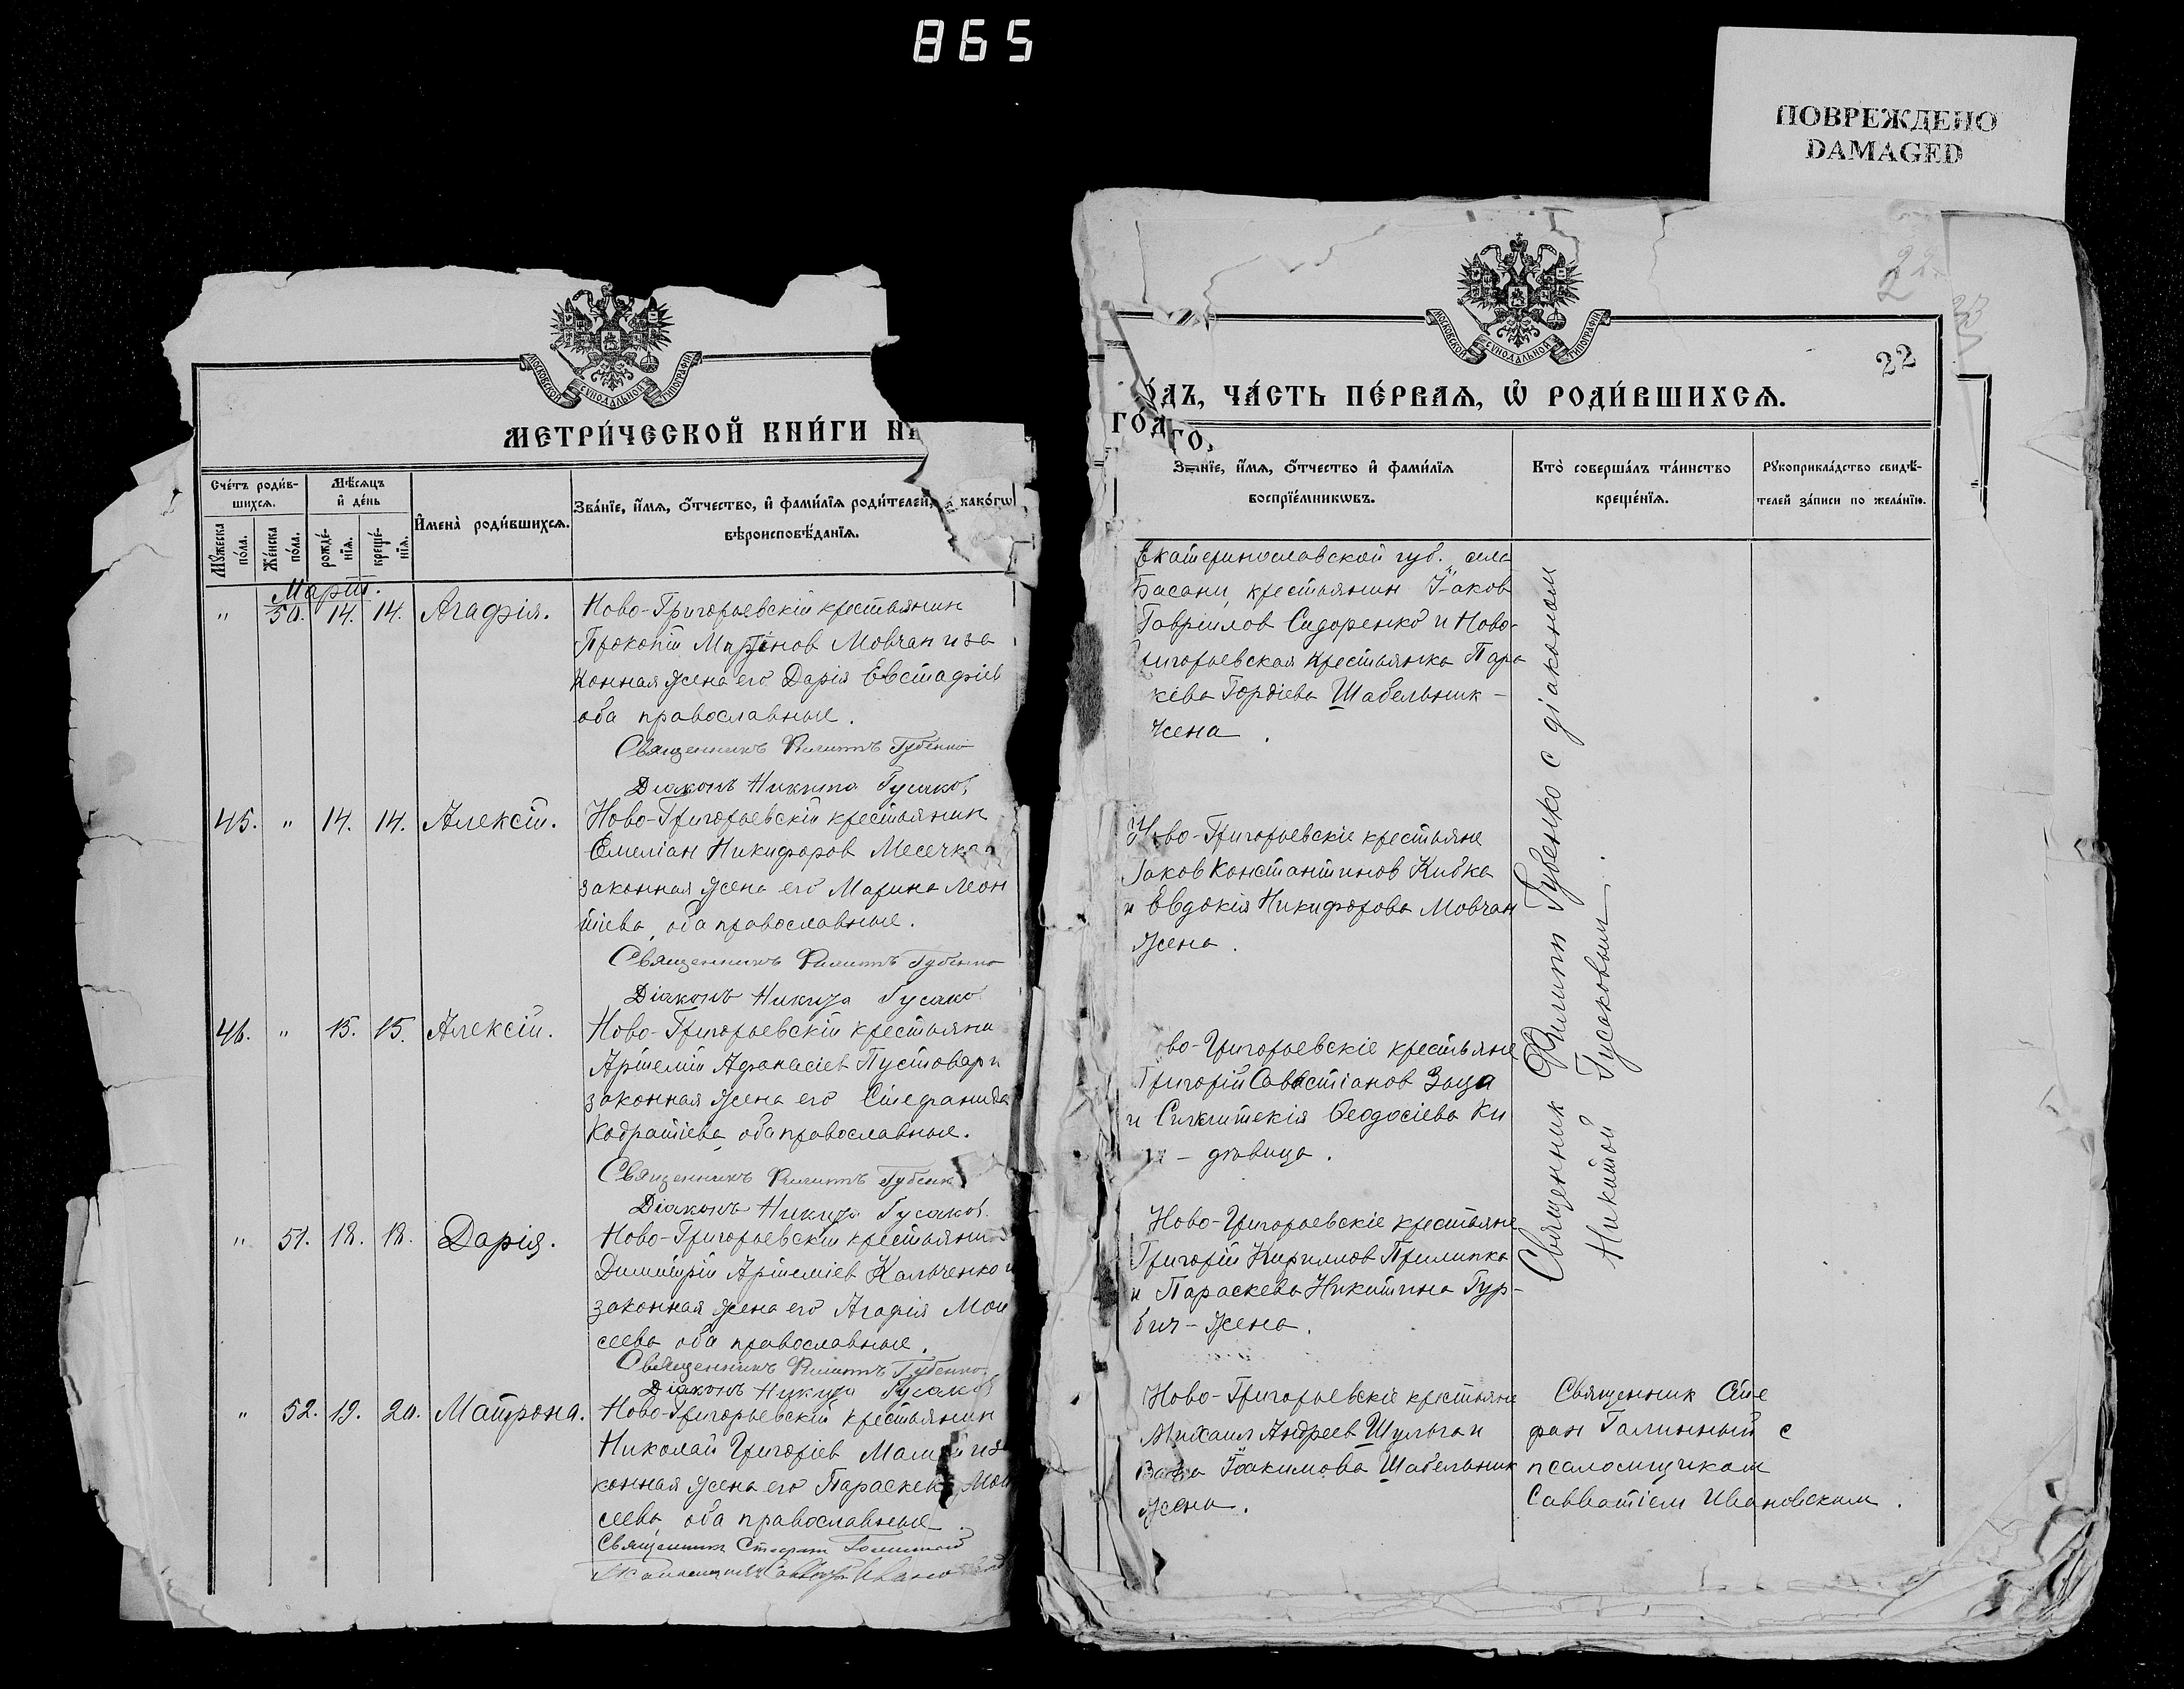 865
ПОВРЕЖДЕНО
DAMAGED
МОСКОВСКОЙ СУНОДАЛЬНОЙ ТИПОГРАФІИ
МЕТРИ́ЧЕСКОЙ КНИ́ГИ Н
Сче́тъ роди́в-
шихсѧ.
Мꙋ́жеска
по́ла.
Же́нска
по́ла.
Мѣ́сѧцъ
и҆ де́нь
рожде́-
нїѧ.
креще́-
нїѧ.
И҆мена̀ роди́вшихсѧ.
Зва́нїе, и҆́мѧ, ѻ҆́тчество, и҆ фами́лїѧ роди́телей, како́гѡ
вѣроисповѣ́данїѧ.
Мартъ.
" 50. 14. 14. Агафія.
Ново-Григорьевскій крестьянин
Прокопій Мартинов Мовчан и за
конная жена его Дарія Евстафіев
оба православные.
Священникъ Филиппъ Губенко
Діаконъ Никита Гусаков
45. " 14. 14. Алексій.
Ново-Григорьевскій крестьянин
Емеліан Никифоров Месечка
законная жена его Марина Леон
тіева, оба православные.
Священникъ Филиппъ Губенко
Діаконъ Никита Гусако
46. " 15. 15. Алексій.
Ново-Григорьевскій крестьяни
Артемій Афанасіев Пустовар и
законная жена его Стефанида
Кодратіева, оба православные.
Священникъ Филиппъ Губенк
Діаконъ Никита Гусаков
" 51. 18. 18. Дарія.
Ново-Григорьевскій крестьянин
Димитрій Артеміев Кальченко и
законная жена его Агафія Мои
сеева оба православные.
Священникъ Филиппъ Губенко
Діаконъ Никита Гусаков
" 52. 19. 20. Матрона.
Ново-Григорьевскій крестьянин
Николай Григоріев и за
конная жена его Параскева Мои
сеева оба православные.
Священник Стефан Галинный
22
МОСКОВСКОЙ СУНОДАЛЬНОЙ ТИПОГРАФІИ
22
О́ДЪ, ЧА́СТЬ ПЕ́РВАѦ, Ѡ҆ РОДИ́ВШИХСѦ.
ГОД
ГО,
Зва́нїе, и҆́мѧ, ѻ҆́тчество и҆ фами́лїѧ
воспрїе́мникѡвъ.
Кто̀ соверша́лъ та́инство
креще́нїѧ.
Рꙋкоприкла́дство свидѣ́-
телей за́писи по жела́нїю.
Екатеринославской губ., села
Басани, крестьянин Іаков
Гавриилов Сидоренко и Ново-
григорьевская крестьянка Пара
кева Гордіева Шабельник -
жена.
Ново-Григорьевскіе крестьяне
Іаков Константинов Кибка
и Евдокія Никифорова Мовчан
жена.
во-Григорьевскіе крестьяне
Григорій Савастіанов Заца
и Синклитекія Ѳеодосіева Ки
- дѣвица.
Ново-Григорьевскіе крестьяне
Григорій Кириллов Прилипка
и Параскева Никитина Гур-
бич - жена.
Ново-Григорьевскіе крестьяне
Михаил Андреев Шульга и
Іоакимова Шабельник
жена.
Священник Филипп Губенко с діаконом
Никитой Гусаковым.
Священник Сте
фан Галинный с
псаломщиком
Савватіем Ивановским.